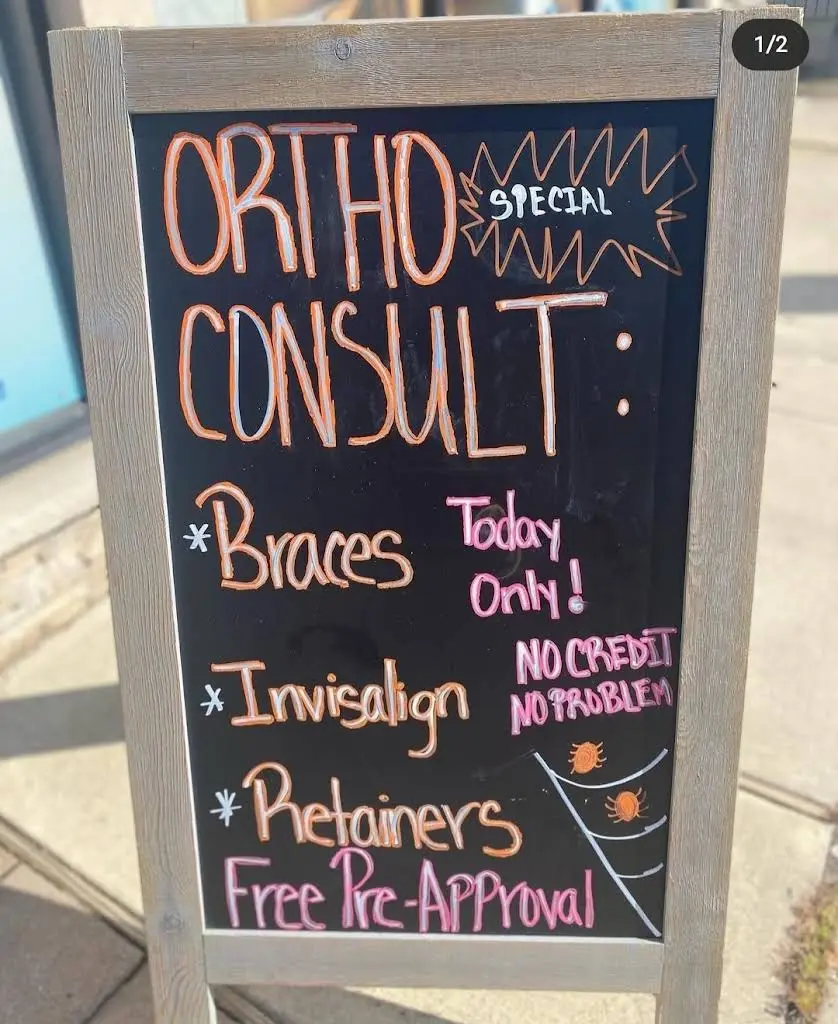 1/2
ORTHO
SPECIAL
CONSULT:
*Braces
Today
Only!
*Invisalign
NO CREDIT
NO PROBLEM
*Retainers
Free Pre-Approval